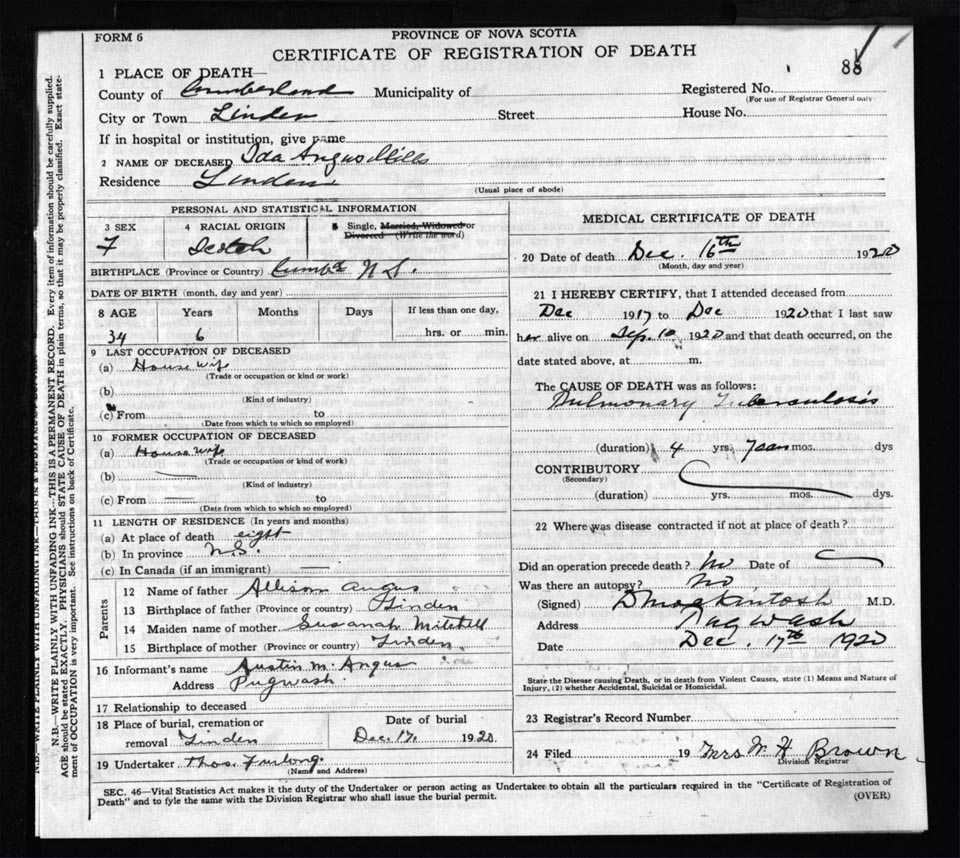 FORM 6
PROVINCE OF NOVA SCOTIA
CERTIFICATE OF REGISTRATION OF DEATH
88
1 PLACE OF DEATH—
County of Cumberland Municipality of Registered No.
(For use of Registrar General only)
City or Town Linden Street House No.
If in hospital or institution, give name
2 NAME OF DECEASED Ida Angus Mills
Residence Linden
(Usual place of abode)
PERSONAL AND STATISTICAL INFORMATION
3 SEX 4 RACIAL ORIGIN 5 Single, Married, Widowed or
Divorced (Write the word)
F Scotch
BIRTHPLACE (Province or Country) Cumbd N S.
DATE OF BIRTH (month, day and year)
8 AGE Years Months Days If less than one day,
34 6 hrs. or min.
9 LAST OCCUPATION OF DECEASED
(a) House wife
(Trade or occupation or kind or work)
(b)
(Kind of industry)
(c) From to
(Date from which to which so employed)
10 FORMER OCCUPATION OF DECEASED
(a) House wife
(Trade or occupation or kind or work)
(b)
(Kind of industry)
(c) From to
(Date from which to which so employed)
11 LENGTH OF RESIDENCE (In years and months)
(a) At place of death eight
(b) In province N.S.
(c) In Canada (if an immigrant)
Parents
12 Name of father Allison Angus
13 Birthplace of father (Province or country) Linden
14 Maiden name of mother Susanah Mitchell
15 Birthplace of mother (Province or country) Linden.
16 Informant's name Austin M. Angus
Address Pugwash.
17 Relationship to deceased
18 Place of burial, cremation or Date of burial
removal Linden Dec. 17. 1920.
19 Undertaker Thos. Furlong.
(Name and Address)
MEDICAL CERTIFICATE OF DEATH
20 Date of death Dec. 16th 1920
(Month, day and year)
21 I HEREBY CERTIFY, that I attended deceased from
Dec 1917 to Dec 1920 that I last saw
her alive on Sep. 10 1920 and that death occurred, on the
date stated above, at m.
The CAUSE OF DEATH was as follows:
Pulmonary Tuberculosis
(duration) 4 yrs. years mos. dys
CONTRIBUTORY
(Secondary)
(duration) yrs. mos. dys.
22 Where was disease contracted if not at place of death?
Did an operation precede death? No Date of
Was there an autopsy? No
(Signed) D Mackintosh M.D.
Address Pugwash
Date Dec. 17th 1920
State the Disease causing Death, or in death from Violent Causes, state (1) Means and Nature of
Injury, (2) whether Accidental, Suicidal or Homicidal.
23 Registrar's Record Number
24 Filed 19 Mrs M H Brown
Division Registrar
SEC. 46—Vital Statistics Act makes it the duty of the Undertaker or person acting as Undertaker to obtain all the particulars required in the "Certificate of Registration of
Death" and to fyle the same with the Division Registrar who shall issue the burial permit.
(OVER)
N.B.—WRITE PLAINLY WITH UNFADING INK—THIS IS A PERMANENT RECORD. Every item of information should be carefully supplied.
AGE should be stated EXACTLY. PHYSICIANS should STATE CAUSE OF DEATH in plain terms, so that it may be properly classified. Exact state-
ment of OCCUPATION is very important. See instructions on back of Certificate.